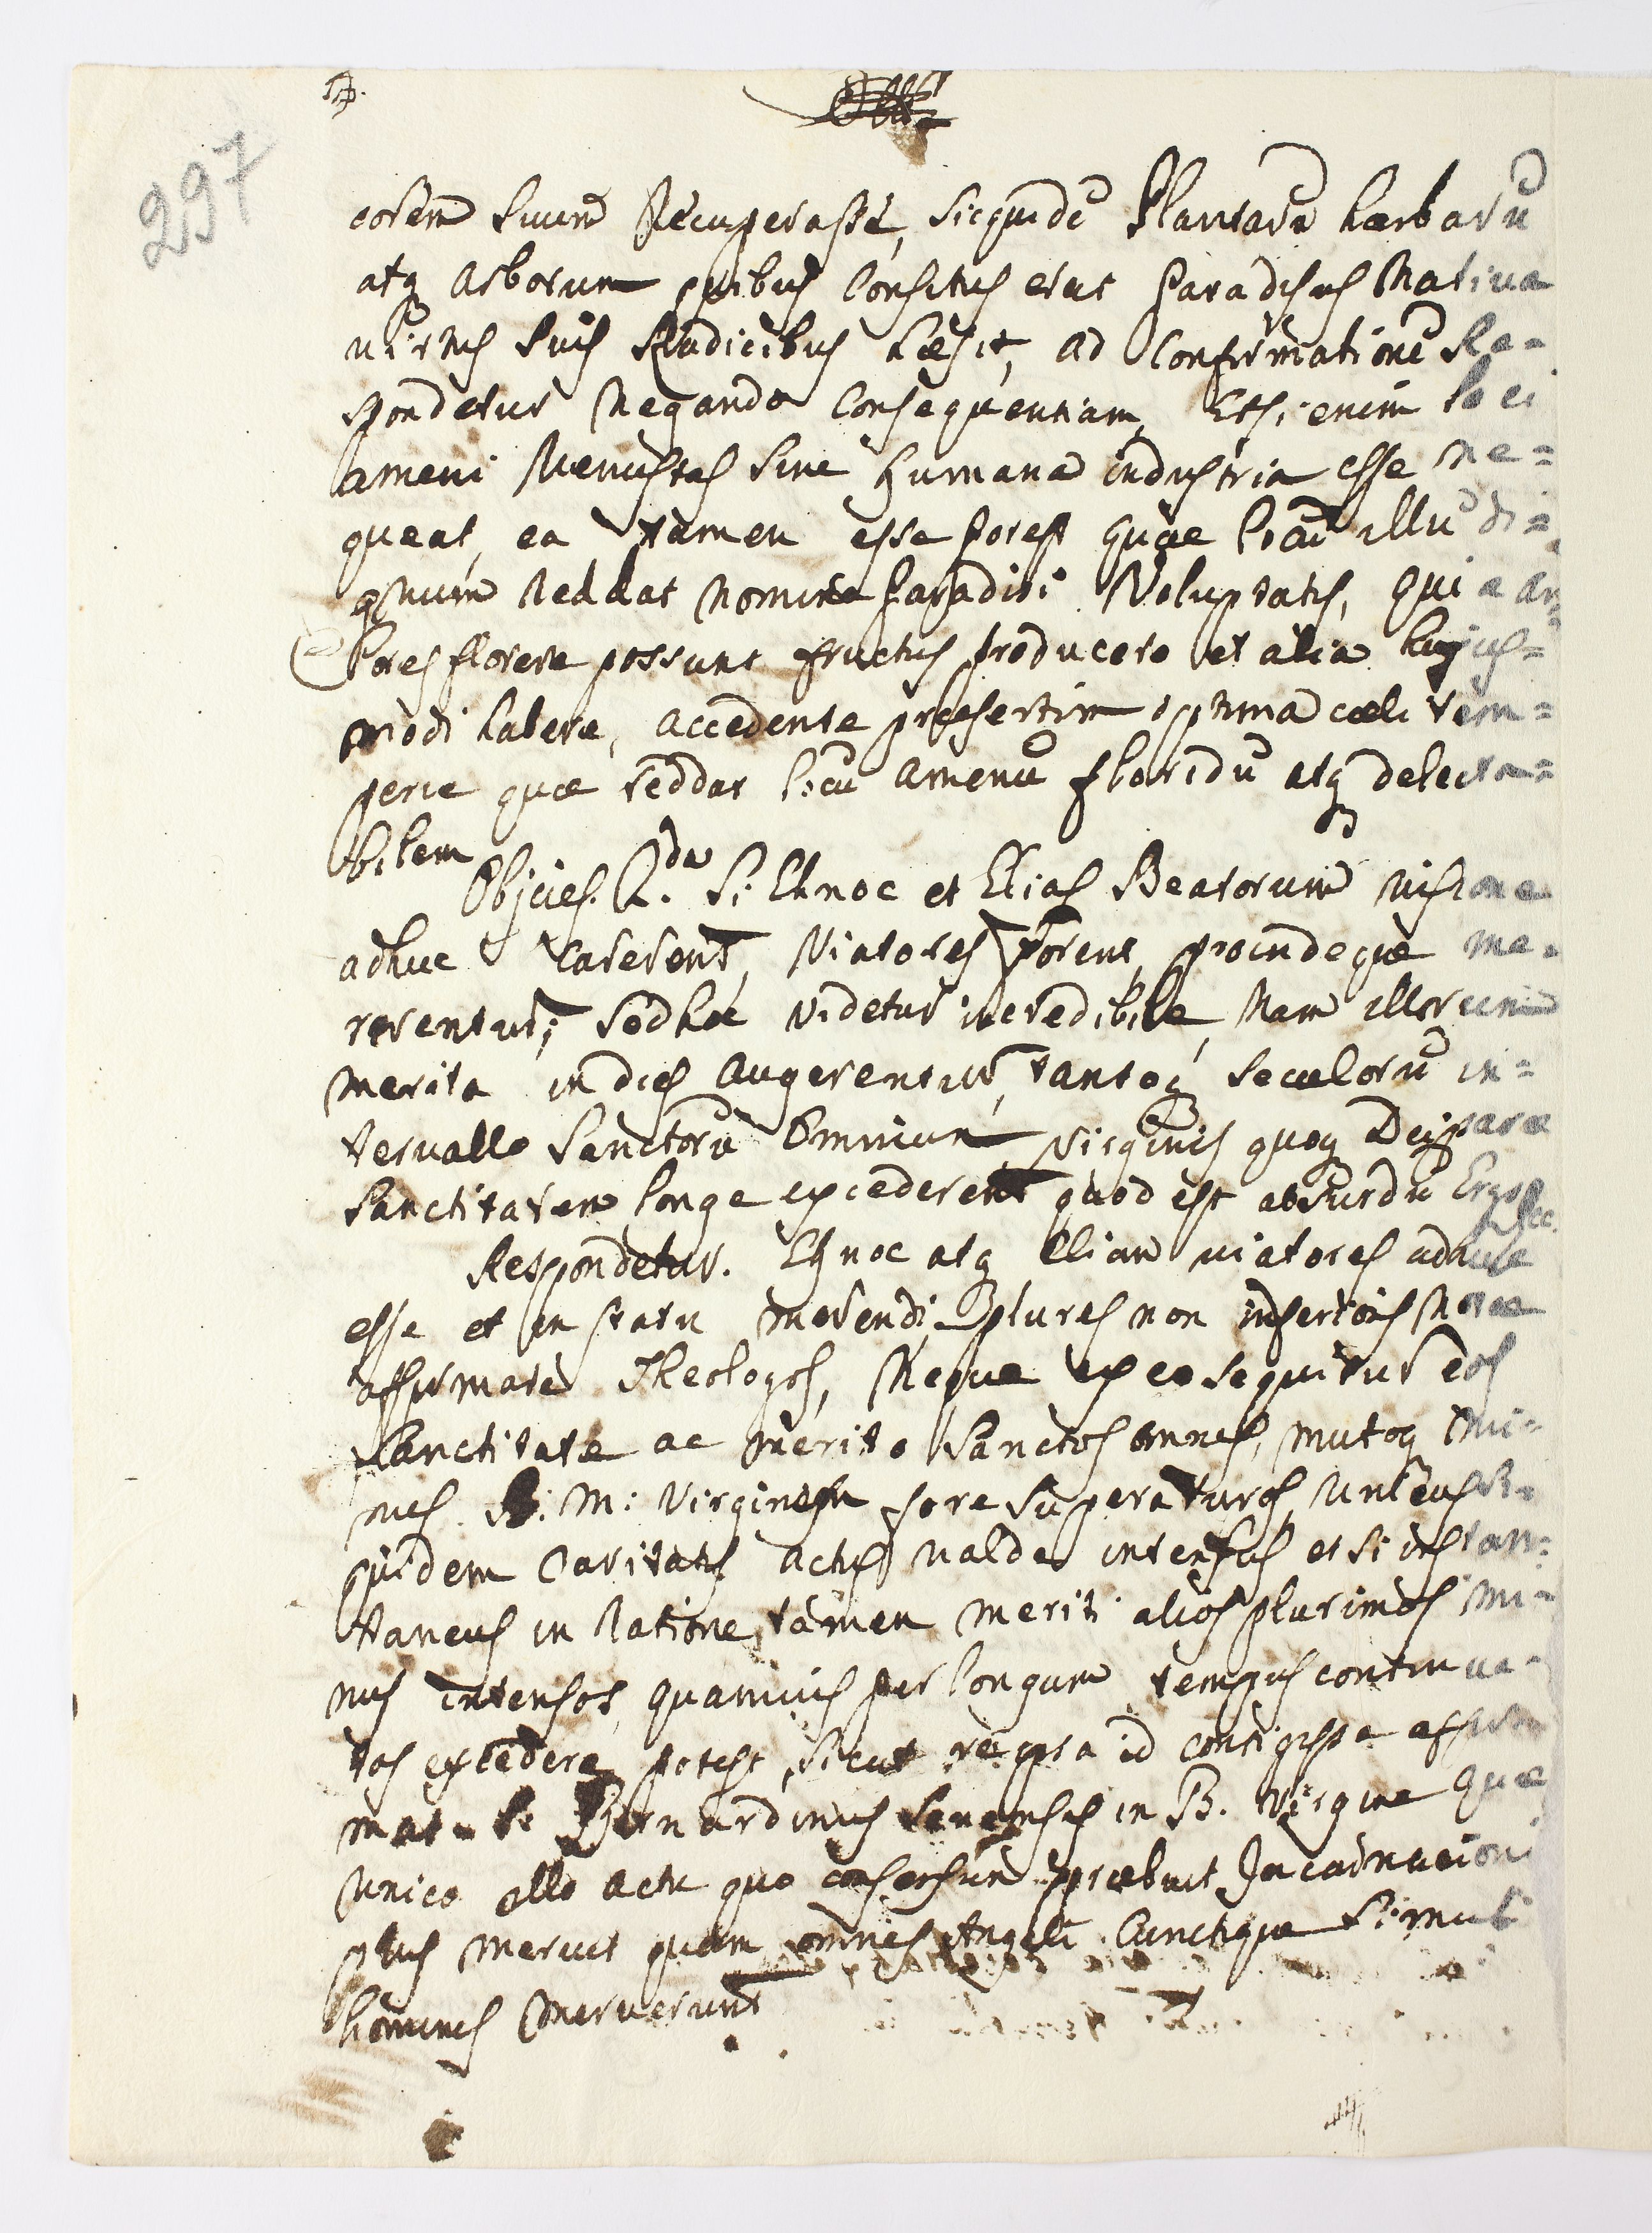 297
corem suum Recuperasse, sicquidē Plantarū hærbarū
atq arborum quibus Consitus erat Paradisus Natiua
uirtus suis Radicibus hæsit, ad Confirmationē Re=
spondetur Negando Consequentiam, Etsi enim loci
ameni Venustas sine humana industria esse ne=
queat, ea tamen esse potest quæ locū illū di=
gnum reddat nomine Paradisi Voluptatis, quia Ar=
bores florere possunt fructus producere et alia hujus=
modi habere, accedente præsertim optima cæli tem=
perie quæ reddat locū amenū floridū atq delecta=
bilem
Objcies. 2.da Si Ehnoc et Elias Beatorum uisione
adhuc Carerent, Viatores forent, proindeque me=
rerentur; sed hoc videtur incredibile, Nam illorum
merita in dies augerentur, tantoq seculorū in=
teruallo Sanctorū Omnium Virginis quoq Deiparæ
Sanctitatem longe excederent quod est absurdū Ergo &c.
Respondetur. Ehnoc atq Eliam uiatores adhuc
esse et in statu merendi plures non inferioris Notæ
affirmare Theologos, Neque ex eo sequitur eos
Sanctitate ac merito Sanctos omnes, mutoq mi=
nus B: M: Virginem fore superaturos, Unicus si=
quidem Caritatis actus ualde intensus et si instan=
taneus in ratione tamen meriti alios plurimos mi=
nus intensos, quamuis per longum tempus continua=
tos excedere potest, sicut re ipsa id contigisse affir
mat S: Bernardinus Senensis in B. Virgine quæ
Unico illo actu quo consensum præbuit Incarnacioni
plus meruit quam omnes Angeli Cunctique Simul
homines meruerunt